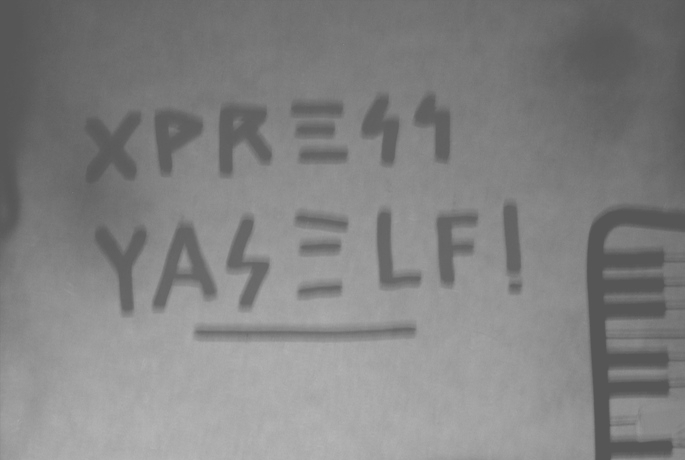 XPRESS
YASELF!